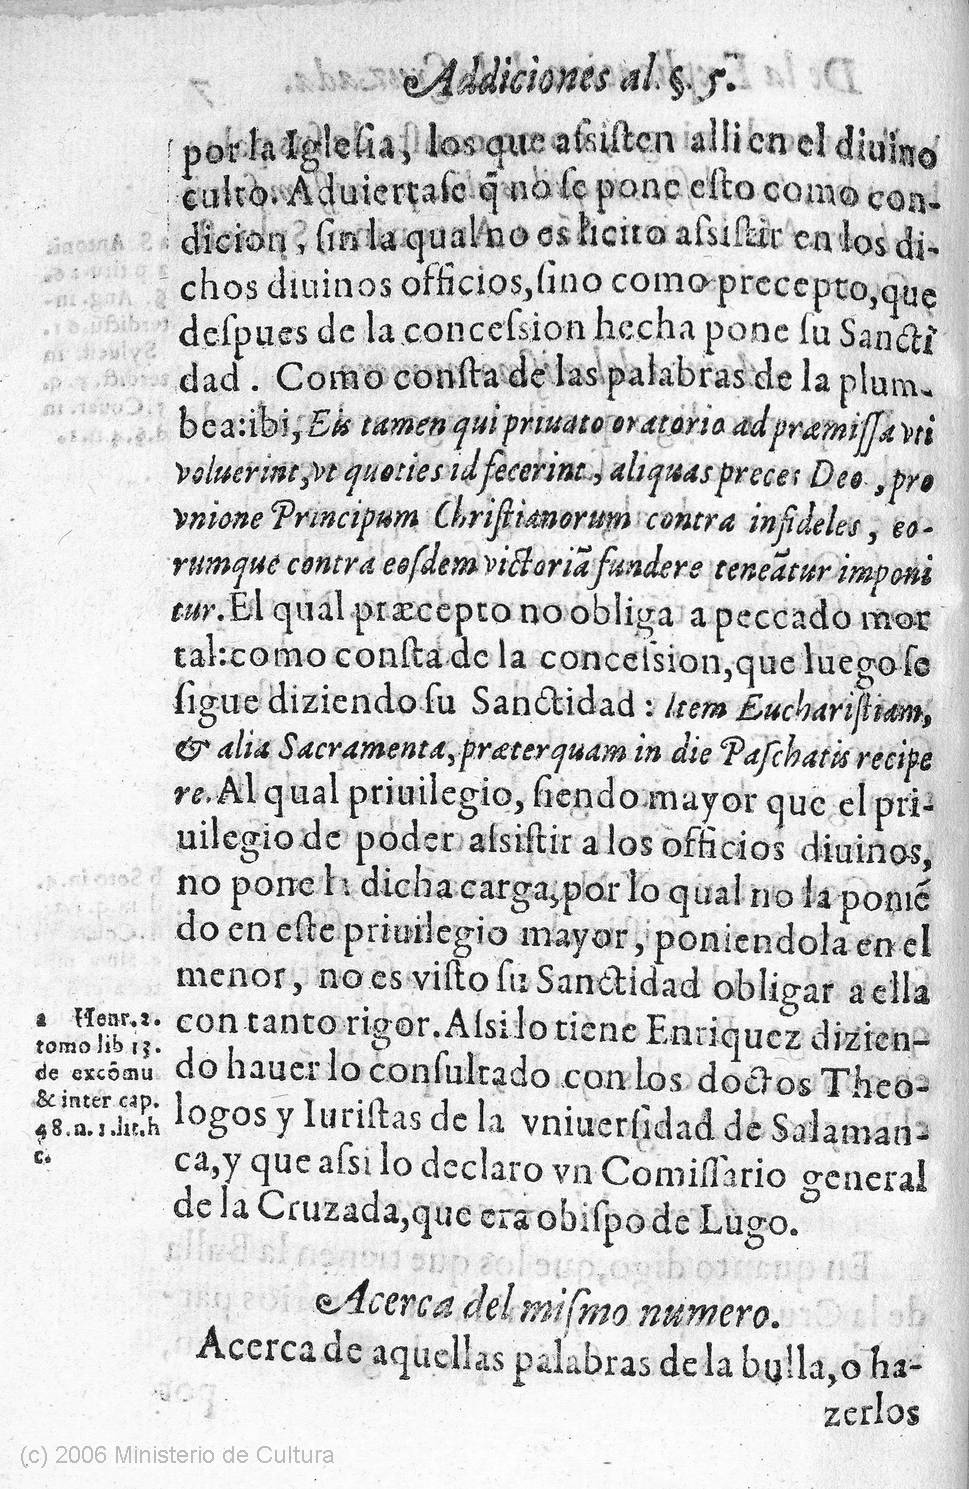 Addiciones al. §. 5.
por la Iglesia, los que aſsiſten alli en el diuino
culto. Aduiertaſe q̃ no ſe pone eſto como con-
dicion, ſin la qual no es licito aſsiſtir en los di-
chos diuinos officios, ſino como precepto, que
deſpues de la conceſsion hecha pone ſu Sancti
dad. Como conſta de las palabras de la plum-
bea: ibi, Eis tamen qui priuato oratorio ad præmiſſa vti
voluerint, vt quoties id fecerint, aliquas preces Deo, pro
vnione Principum Chriſtianorum contra infideles, eo-
rumque contra eoſdem victoriã fundere teneãtur imponi
tur. El qual præcepto no obliga a peccado mor
tal: como conſta de la conceſsion, que luego ſe
ſigue diziendo ſu Sanctidad: Item Euchariſtiam,
& alia Sacramenta, præterquam in die Paſchatis recipe
re. Al qual priuilegio, ſiendo mayor que el pri-
uilegio de poder aſsiſtir a los officios diuinos,
no pone la dicha carga, por lo qual no la poniẽ
do en eſte priuilegio mayor, poniendola en el
menor, no es viſto ſu Sanctidad obligar a ella
con tanto rigor. Aſsi lo tiene Enriquez dizien-
do hauer lo conſultado con los doctos Theo-
logos y Iuriſtas de la vniuerſidad de Salaman-
ca, y que aſsi lo declaro vn Comiſſario general
de la Cruzada, que era obiſpo de Lugo.
a Henr. 2.
tomo lib 13.
de excõmu
& inter cap.
48. n. 1. lit. h
c.
Acerca del miſmo numero.
Acerca de aquellas palabras de la bulla, o ha-
zerlos
(c) 2006 Ministerio de Cultura